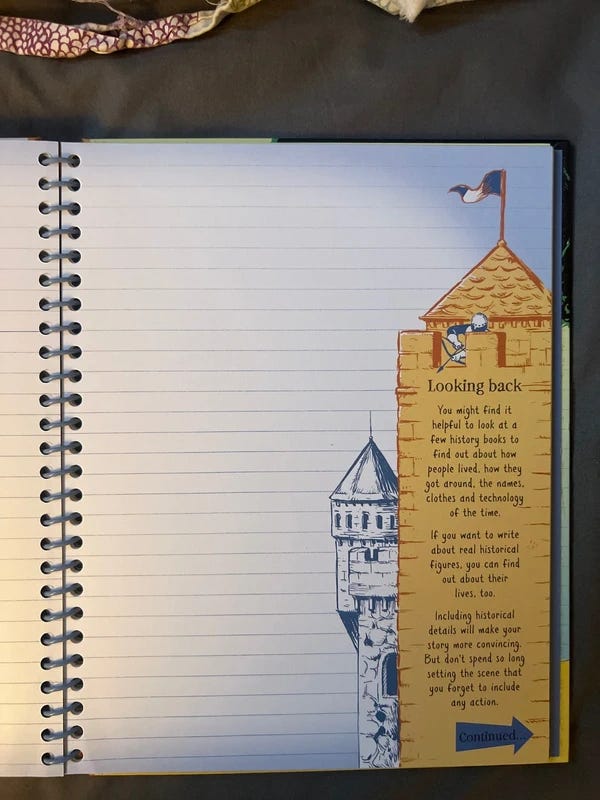 Looking back
You might find it
helpful to look at a
few history books to
find out about how
people lived, how they
got around, the names,
clothes and technology
of the time.
If you want to write
about real historical
figures, you can find
out about their
lives, too.
Including historical
details will make your
story more convincing.
But don't spend so long
setting the scene that
you forget to include
any action.
Continued...